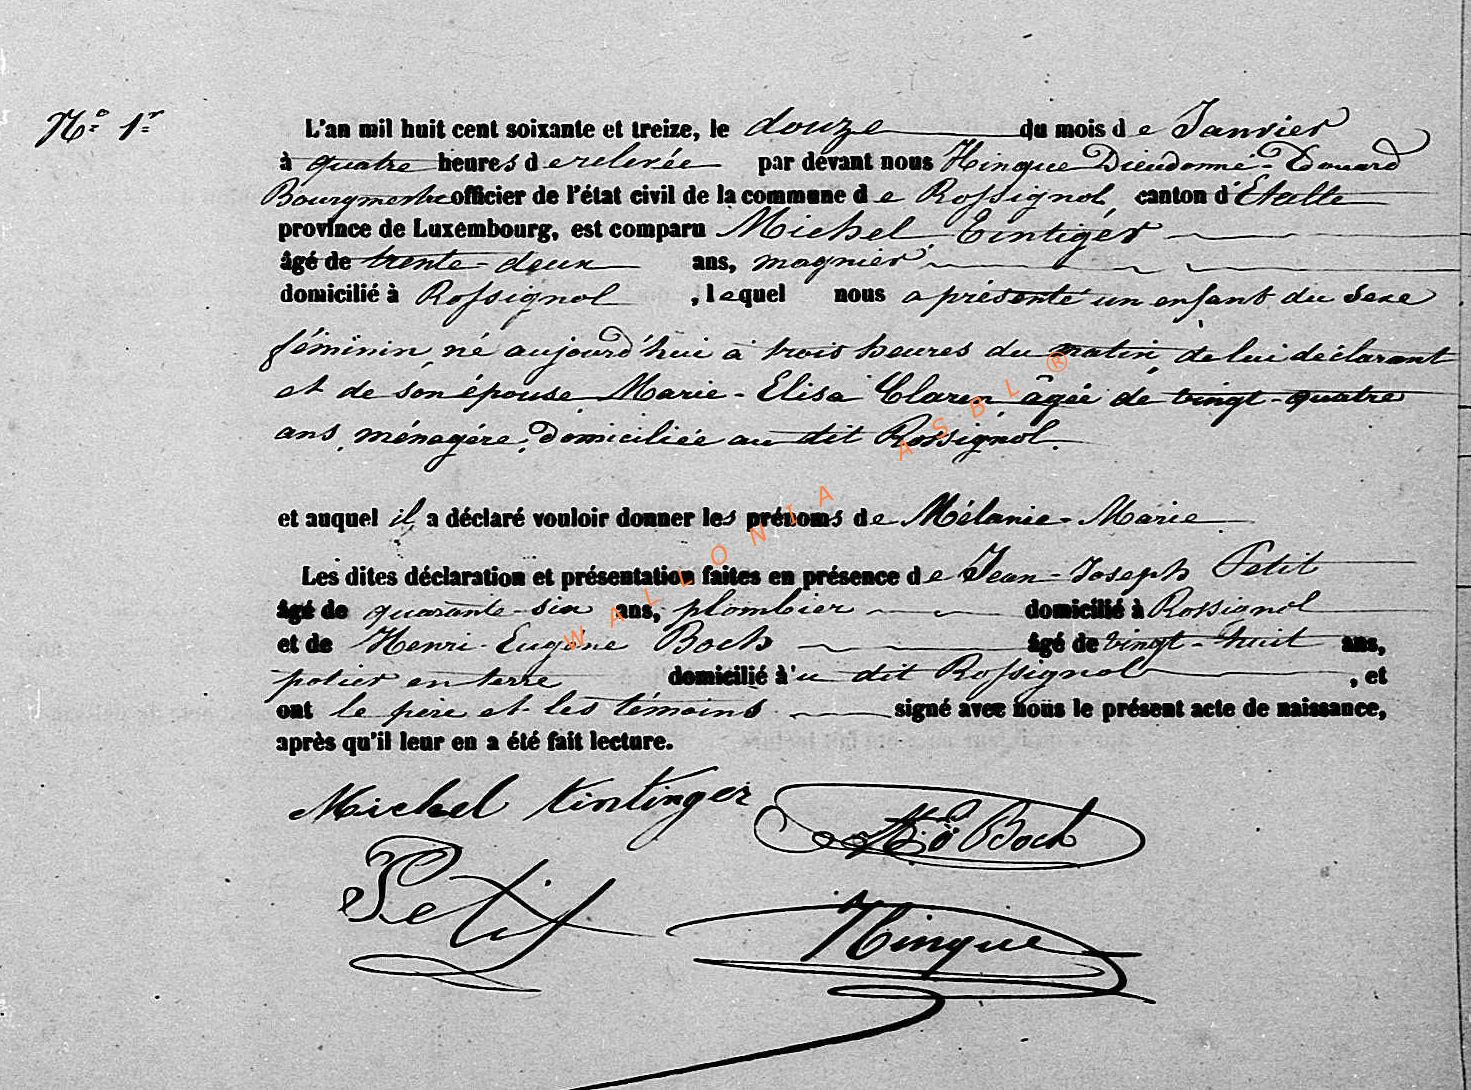 N° 1er
L'an mil huit cent soixante et treize, le douze du mois de Janvier
à quatre heures de relevée par devant nous Hinque Dieudonné-Edouard
Bourgmestre officier de l'état civil de la commune de Rossignol canton d'Etalle
province de Luxembourg, est comparu Michel Tintiger
âgé de trente-deux ans, magnier
domicilié à Rossignol, lequel nous a présenté un enfant du sexe
féminin né aujourd'hui à trois heures du matin de lui déclarant
et de son épouse Marie-Elisa Claren âgée de vingt-quatre
ans, ménagère, domiciliée au dit Rossignol.
et auquel il a déclaré vouloir donner les prénoms de Mélanie-Marie
Les dites déclaration et présentation faites en présence de Jean-Joseph Petit
âgé de quarante-six ans, plombier domicilié à Rossignol
et de Henri-Eugène Boch âgé de vingt-huit ans,
potier en terre domicilié à'u dit Rossignol, et
ont le père et les témoins signé avec nous le présent acte de naissance,
après qu'il leur en a été fait lecture.
Michel tintinger
Boch
Petit
Hinque
WALLONIA ASBL ®